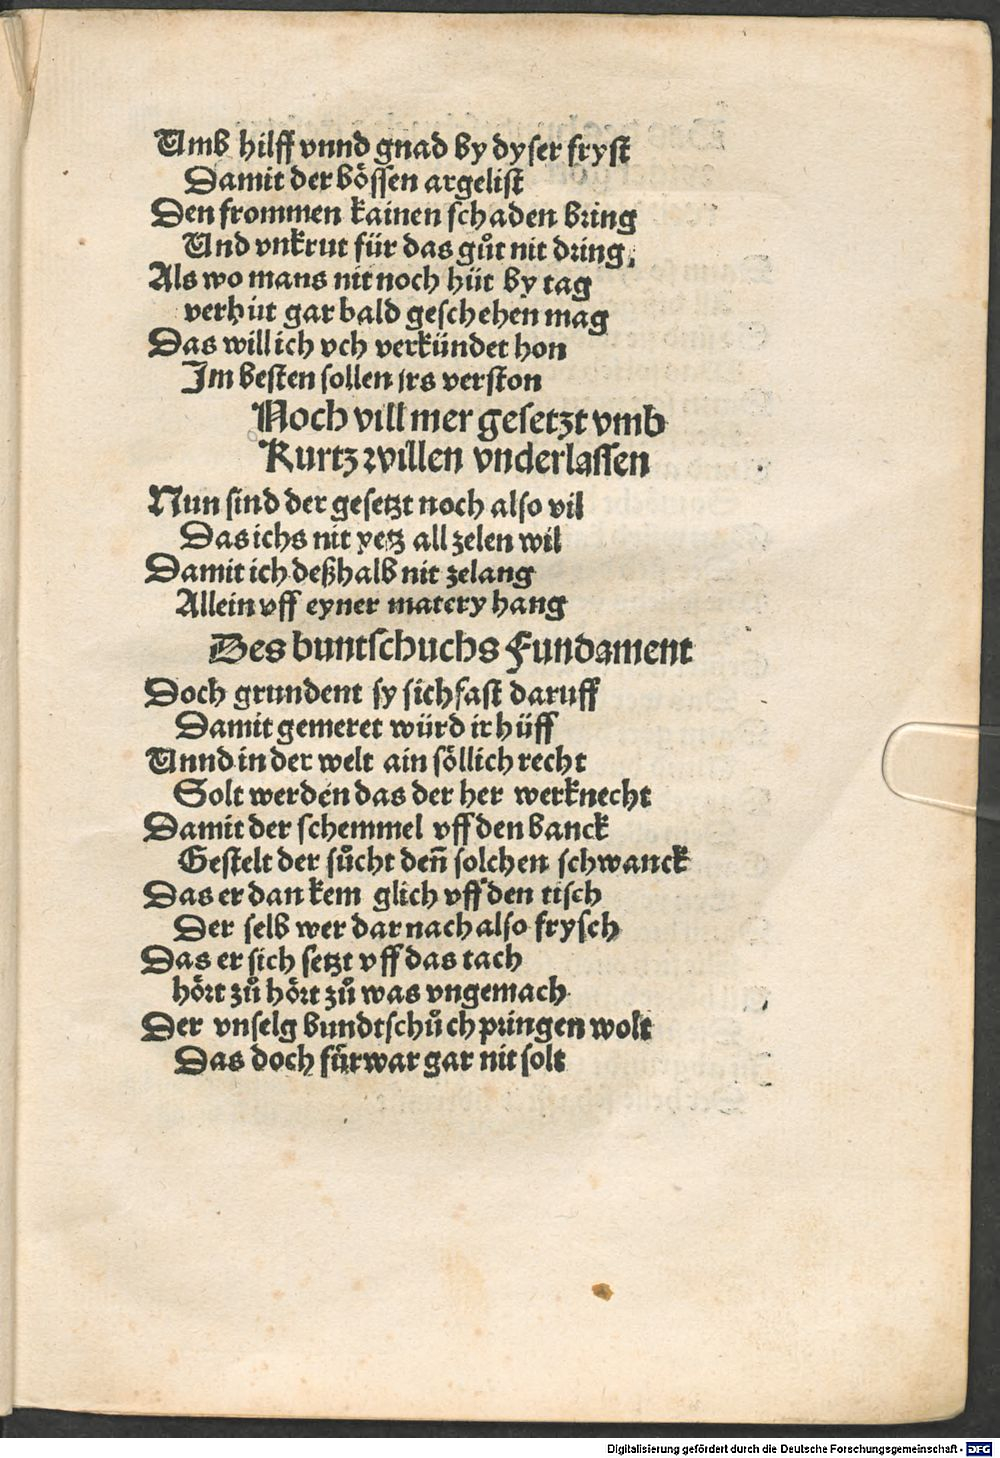 Umb hilff vnnd gnad by dyser fryst
Damit der bössen argelist
Den frommen kainen schaden bring
Und vnkrut für das gůt nit dring,
Als wo mans nit noch hüt by tag
verhüt gar bald geschehen mag
Das will ich vch verkündet hon
Im besten sollen irs verston
Noch vill mer gesetzt vmb
Kurtz willen vnderlassen
Nun sind der gesetzt noch also vil
Das ichs nit yetz all zelen wil
Damit ich deßhalb nit zelang
Allein vff eyner matery hang
Des buntschuchs Fundament
Doch grundent sy sich fast daruff
Damit gemeret würd ir hüff
Unnd in der welt ain söllich recht
Solt werden das der her werknecht
Damit der schemmel vff den banck
Gestelt der sůcht deñ solchen schwanck
Das er dan kem glich vff den tisch
Der selb wer dar nach also frysch
Das er sich setzt vff das tach
hört zů hört zů was vngemach
Der vnselg bundtschůch pringen wolt
Das doch fürwar gar nit solt
Digitalisierung gefördert durch die Deutsche Forschungsgemeinschaft - DFG